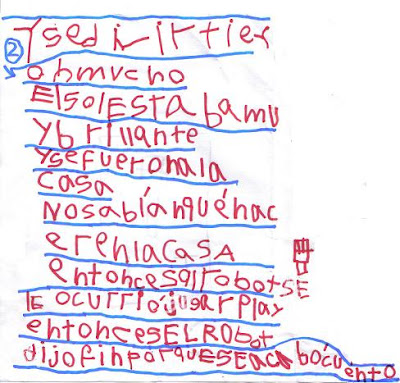 ②
Ysedivirtier
onmucho
ElsolEStabamu
Ybrillante
Ysefueronala
casa
Nosabíanquéhac
erenlacasA
entoncesalrobotSE
lE ocurriójugarplay
entoncesELRObot
dijofinporquESEACAbócuento